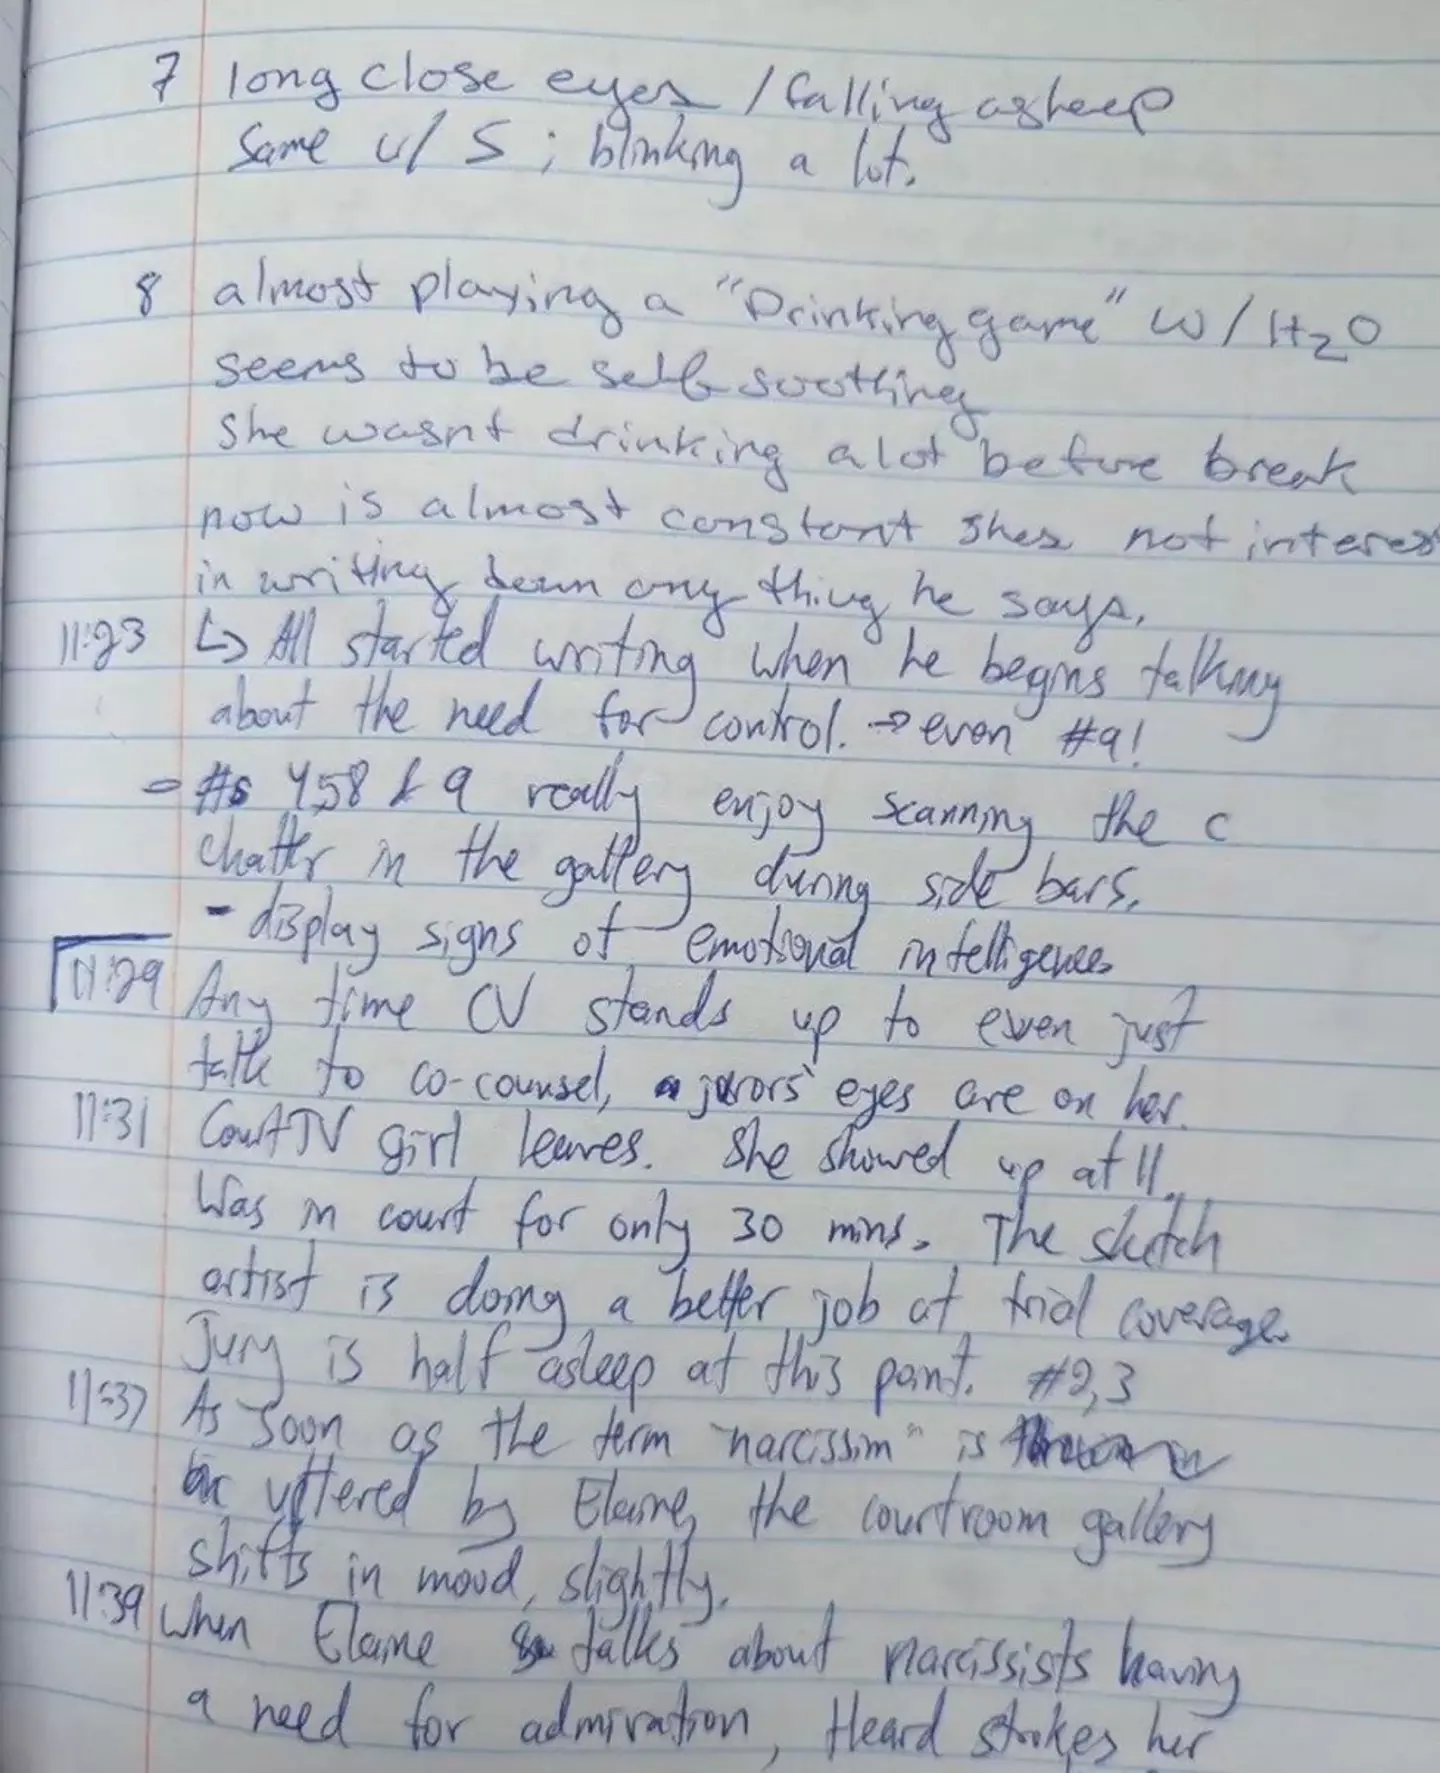 7 long close eyes / falling asleep
same w/ 5 ; blinking a lot.
8 almost playing a "Drinking game" w/ H2O
seems to be self soothing
she wasnt drinking alot before break
now is almost constant shes not interes
in writing down any thing he says.
11:23 ↳ All started writing when he begins talking
about the need for control. → even #9!
- #s 4,5,8 & 9 really enjoy scanning the c
chatter in the gallery during side bars.
- display signs of emotional intelligence.
11:29 Any time CV stands up to even just
talk to co-counsel, jurors' eyes are on her.
11:31 CourtTV girl leaves. She showed up at 11.
Was in court for only 30 mins. The sketch
artist is doing a better job at trial coverage.
Jury is half asleep at this point. #2,3
11:37 As soon as the term "narcissim" is
uttered by Elaine, the courtroom gallery
shifts in mood, slightly.
11:39 when Elaine talks about narcissists having
a need for admiration, Heard strokes her